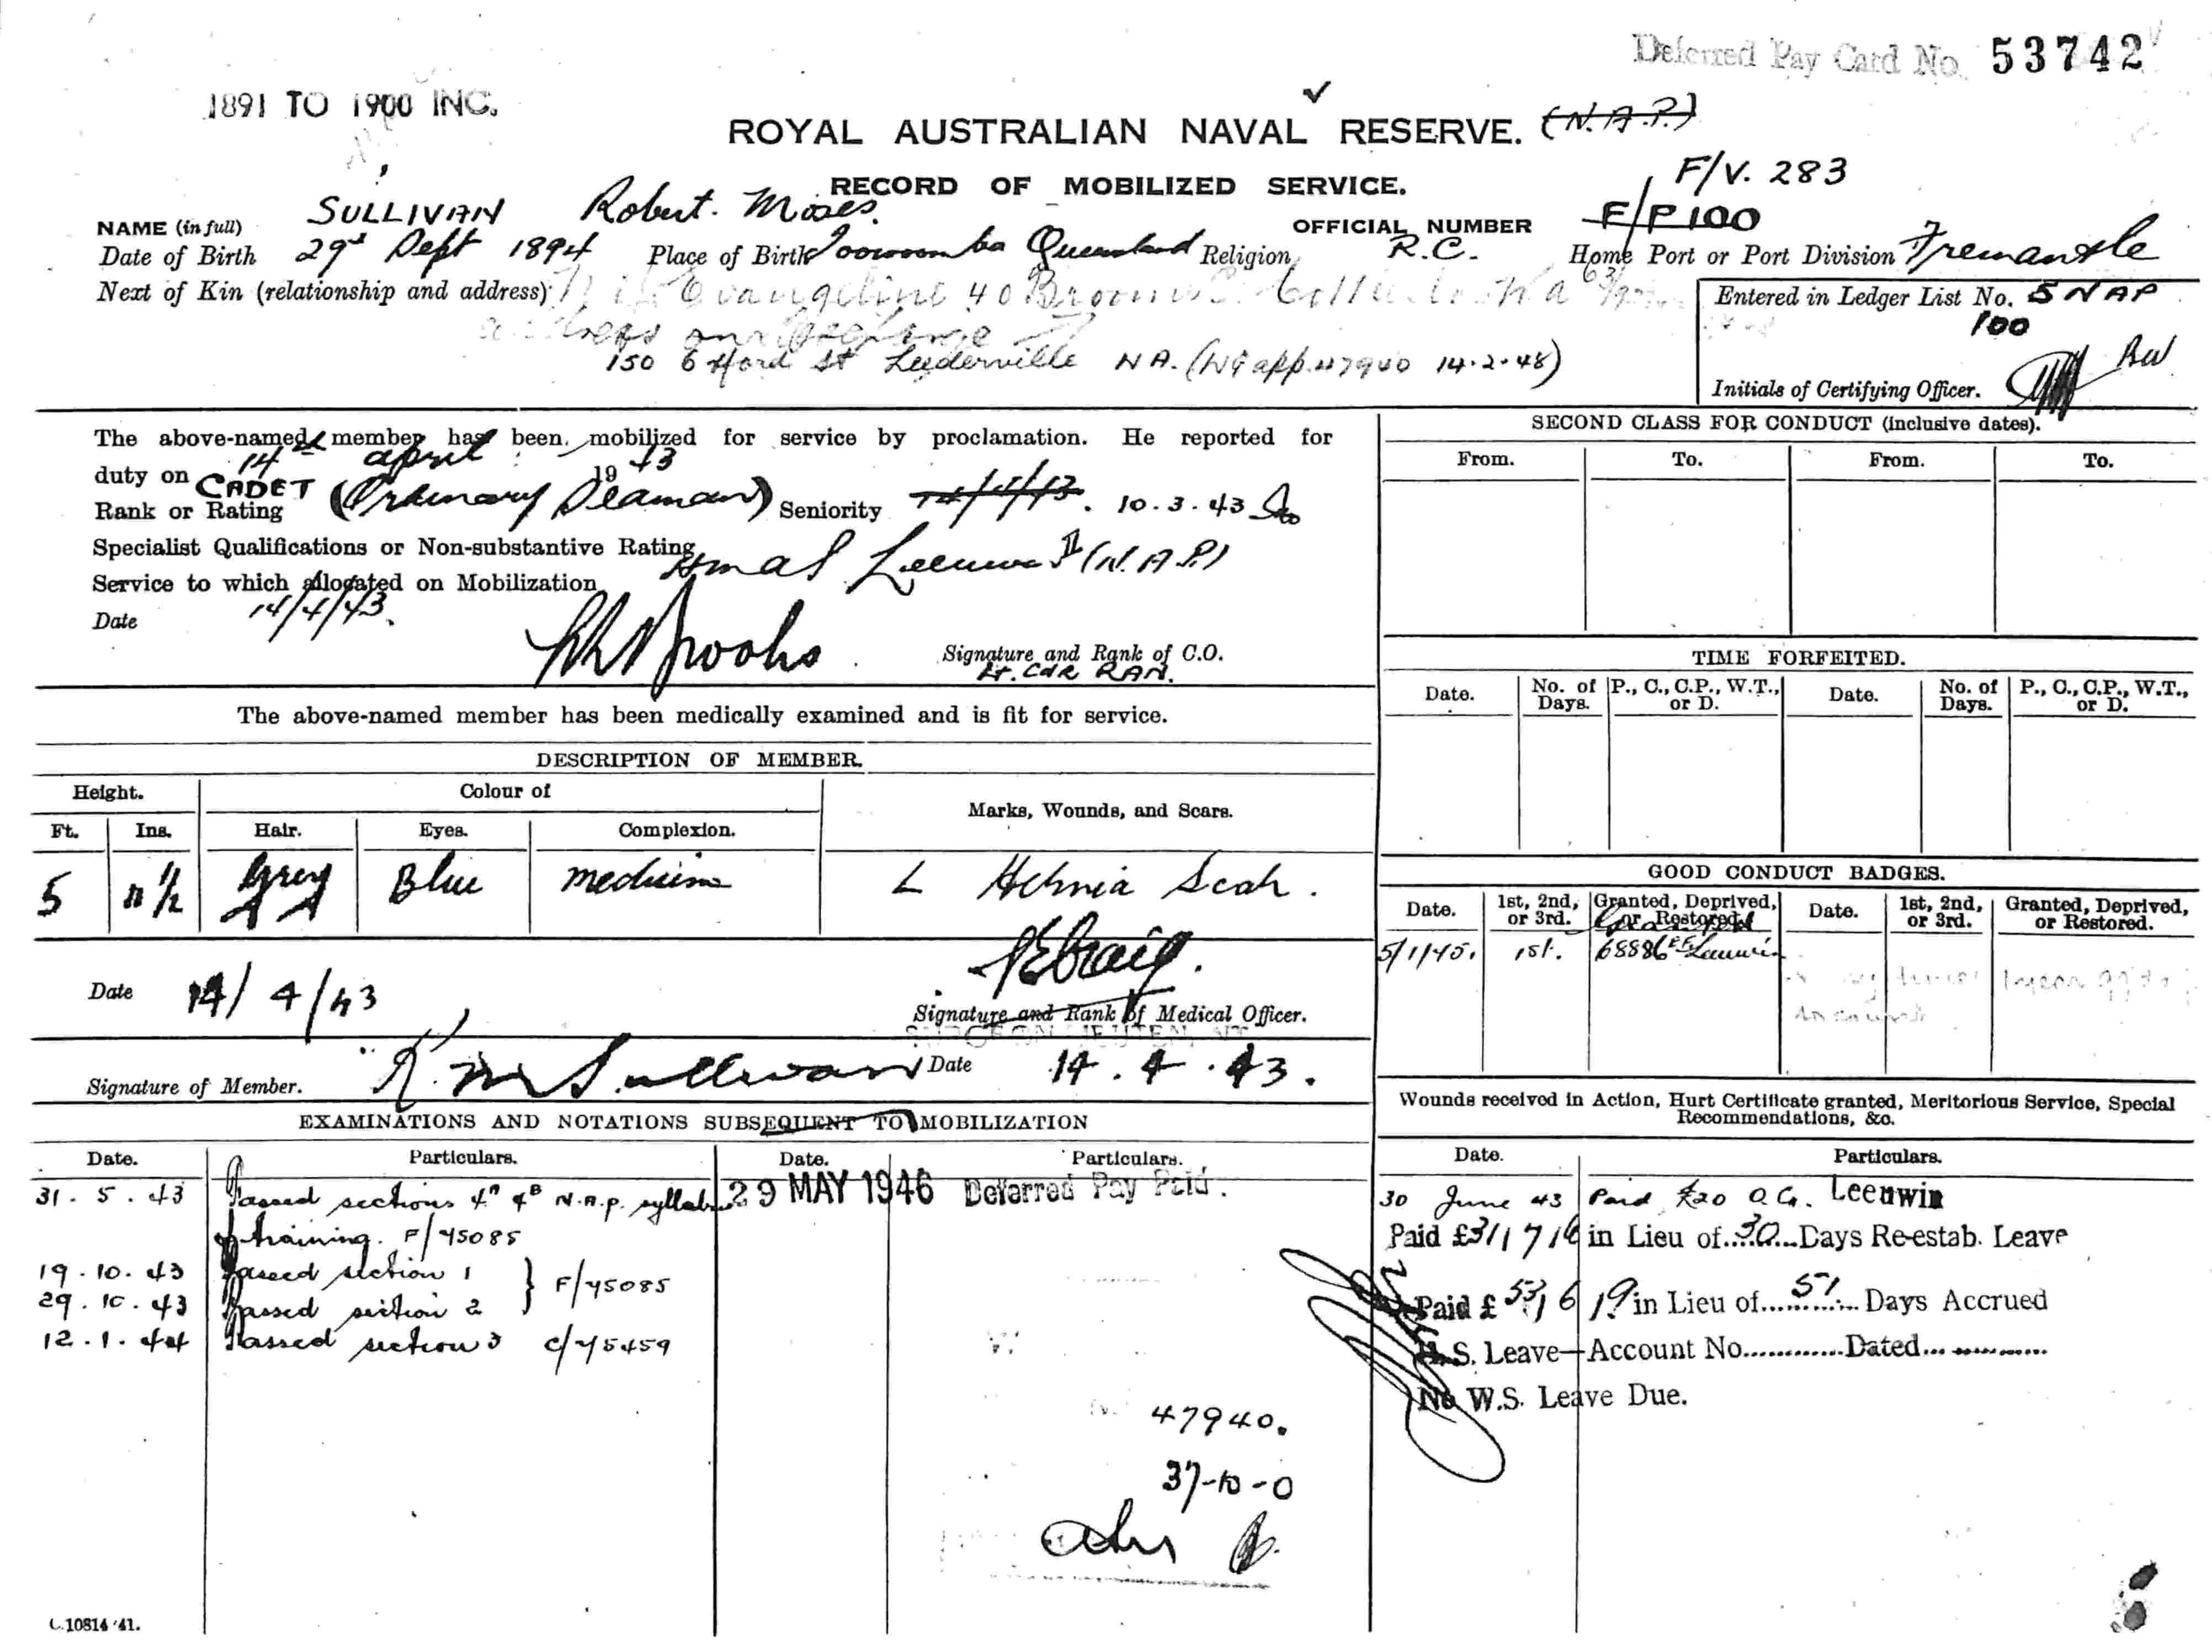 Deferred Pay Card No. 53742
1891 TO 1900 INC.
ROYAL AUSTRALIAN NAVAL RESERVE. (N.A.P.)
RECORD OF MOBILIZED SERVICE.
F/V. 283
NAME (in full) SULLIVAN Robert. Moses. OFFICIAL NUMBER F/P100
Date of Birth 29th Sept 1894 Place of Birth Toowoomba Queensland Religion R.C. Home Port or Port Division Fremantle
Next of Kin (relationship and address) Evangeline 40
150 St Leederville (app. 47940 14.2.48)
Entered in Ledger List No. 5 NAP
100
Initials of Certifying Officer.
The above-named member has been mobilized for service by proclamation. He reported for
duty on 14th April 1943
Rank or Rating CADET (Ordinary Seaman) Seniority 14/4/43. 10.3.43
Specialist Qualifications or Non-substantive Rating
Service to which allocated on Mobilization HMAS Leeuwin II (N.A.P.)
Date 14/4/43.
Signature and Rank of C.O.
Lt. Cdr RAN.
The above-named member has been medically examined and is fit for service.
DESCRIPTION OF MEMBER.
Height. Colour of Marks, Wounds, and Scars.
Ft. Ins. Hair. Eyes. Complexion.
5 11 1/2 Grey Blue medium L Hernia Scar.
Date 14/4/43
Signature and Rank of Medical Officer.
SURGEON LIEUTENANT
Signature of Member. R. M. Sullivan Date 14.4.43.
EXAMINATIONS AND NOTATIONS SUBSEQUENT TO MOBILIZATION
Date. Particulars. Date. Particulars.
31.5.43 Passed sections 4A 4B N.A.P. syllabus
of training. F/45085
19.10.43 Passed section 1
29.10.43 Passed section 2 } F/45085
12.1.44 Passed section 3 C/45459
29 MAY 1946 Deferred Pay Paid.
47940.
37-10-0
C.10814/41.
SECOND CLASS FOR CONDUCT (inclusive dates).
From. To. From. To.
TIME FORFEITED.
Date. No. of Days. P., C., C.P., W.T., or D. Date. No. of Days. P., C., C.P., W.T., or D.
GOOD CONDUCT BADGES.
Date. 1st, 2nd, or 3rd. Granted, Deprived, or Restored. Date. 1st, 2nd, or 3rd. Granted, Deprived, or Restored.
Granted
5/1/45. 1st. 68886 Leeuwin
Wounds received in Action, Hurt Certificate granted, Meritorious Service, Special
Recommendations, &c.
Date. Particulars.
30 June 43 Paid £20 O.G. Leeuwin
Paid £31/7/6 in Lieu of 30 Days Re-estab. Leave
Paid £53/6/9 in Lieu of 51 Days Accrued
W.S. Leave—Account No............Dated............
No W.S. Leave Due.